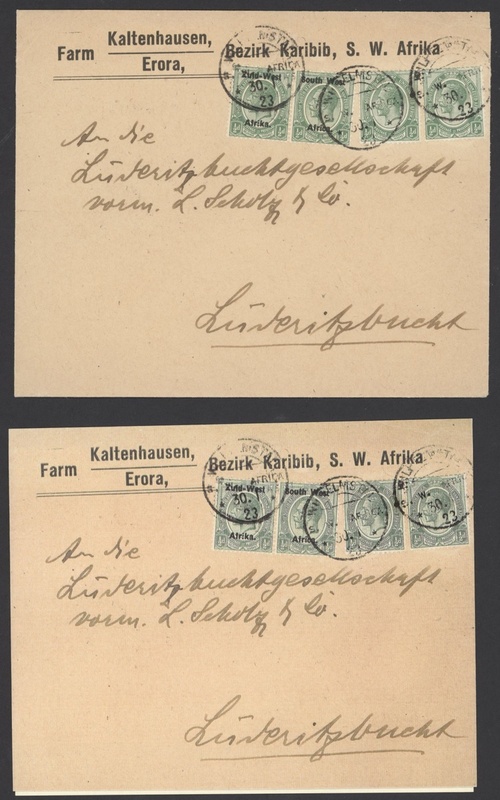 Farm Kaltenhausen, Erora, Bezirk Karibib, S. W. Afrika.
Zuid-West Afrika.
South West Africa.
30.
23
An die
Lüderitzbuchtgesellschaft
vorm. L. Scholz & Co.
Lüderitzbucht
Farm Kaltenhausen, Erora, Bezirk Karibib, S. W. Afrika.
Zuid-West Afrika.
South West Africa.
30.
23
An die
Lüderitzbuchtgesellschaft
vorm. L. Scholz & Co.
Lüderitzbucht